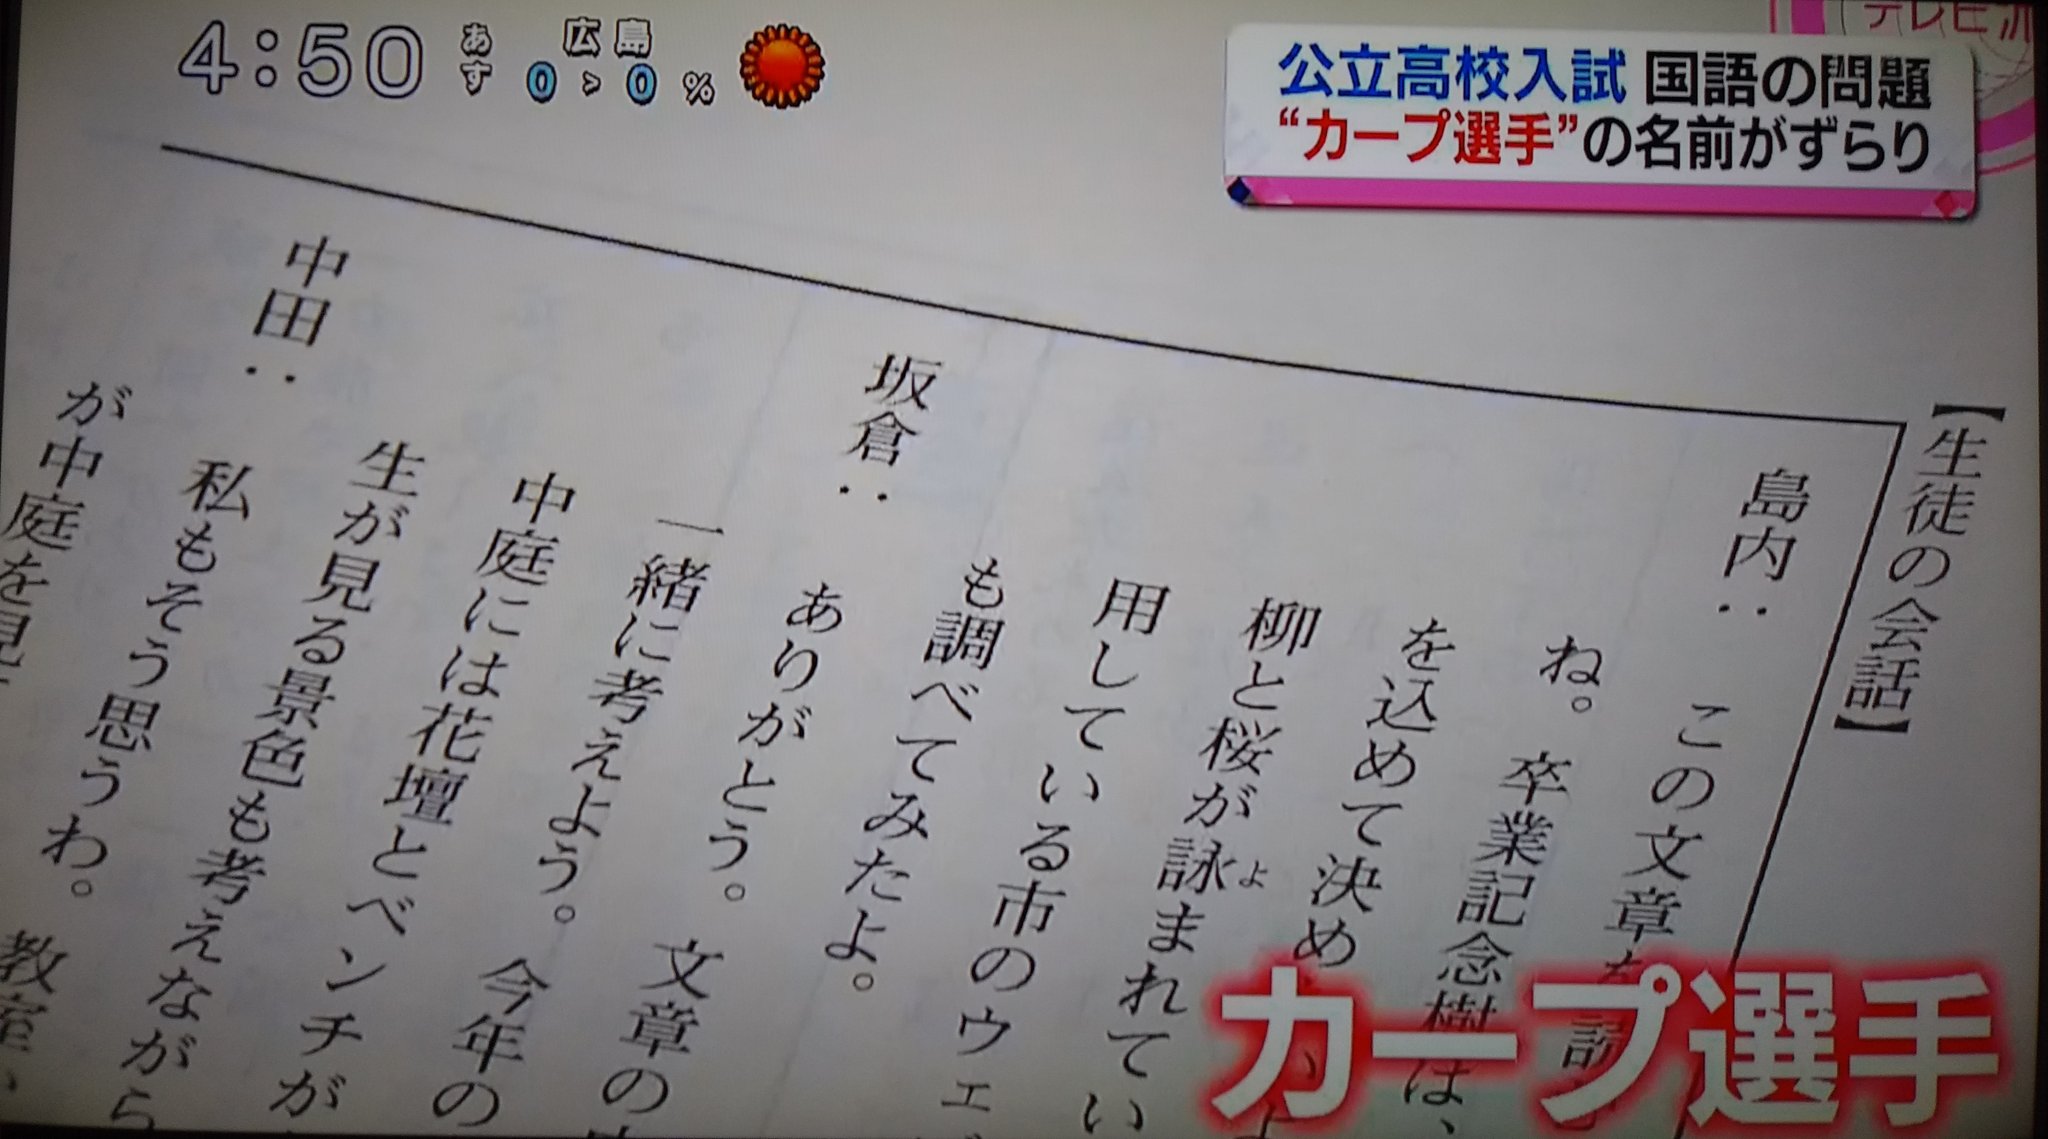 4:50
あす
広島
0 > 0 %
テレビ派
公立高校入試 国語の問題
“カープ選手”の名前がずらり
【生徒の会話】
島内： この文章を読
ね。 卒業記念樹は、
を込めて決め
柳と桜が詠まれてい
よ
用している市のウェ
も調べてみたよ。
坂倉： ありがとう。 文章の
一緒に考えよう。 今年の
中庭には花壇とベンチが
生が見る景色も考えながら
中田： 私もそう思うわ。 教室
が中庭を見
カープ選手